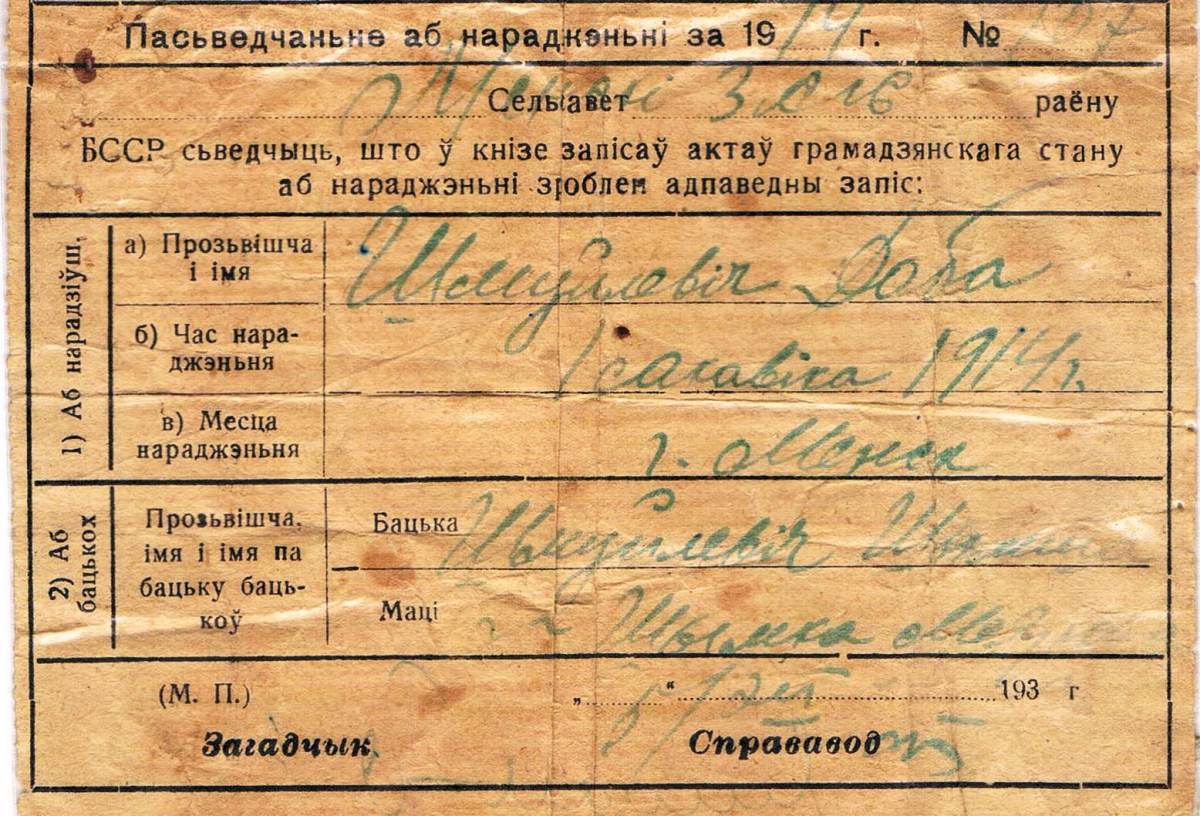 Пасьведчаньне аб нараджэньні за 1914 г. №
Сельсавет раёну
БССР сьведчыць, што ў кнізе запісаў актаў грамадзянскага стану
аб нараджэньні зроблен адпаведны запіс:
1) Аб нарадзіўш.
а) Прозьвішча
і імя
Шмуйлевіч Доба
б) Час нара-
джэньня
1 сакавіка 1914 г.
в) Месца
нараджэньня
г. Менск
2) Аб
бацькох
Прозьвішча,
імя і імя па
бацьку баць-
коў
Бацька Шмуйлевіч
Маці
(М. П.)
„ “ 193 г
Загадчык Справавод